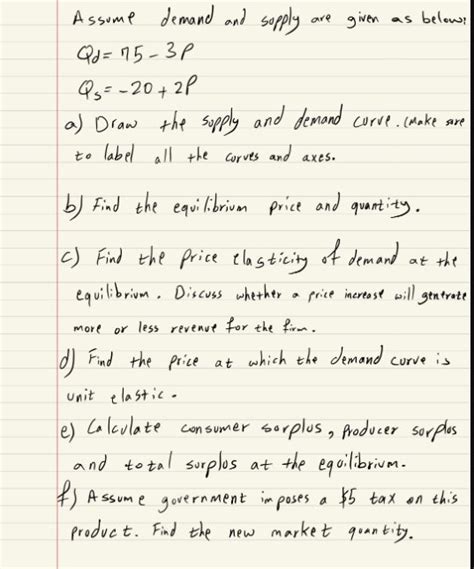 Assume demand and supply are given as below:
Qd = 75 - 3P
Qs = -20 + 2P
a) Draw the supply and demand curve. (Make sure
to label all the curves and axes.
b) Find the equilibrium price and quantity.
c) Find the price elasticity of demand at the
equilibrium. Discuss whether a price increase will generate
more or less revenue for the firm.
d) Find the price at which the demand curve is
unit elastic.
e) Calculate consumer sorplus, producer sorplos
and total surplos at the equilibrium.
f) Assume government imposes a $5 tax on this
product. Find the new market quantity.